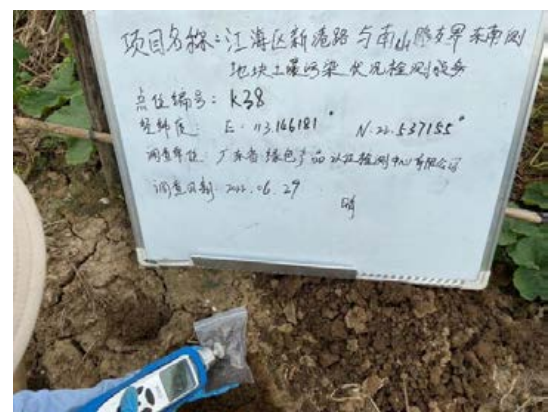 项目名称：江海区新港路与南山路交界东南侧
地块土壤污染状况检测服务
点位编号：K38
经纬度：E：113.146181° N：22.537155°
调查单位：广东省绿色产品认证检测中心有限公司
调查日期：2022.06.29 晴